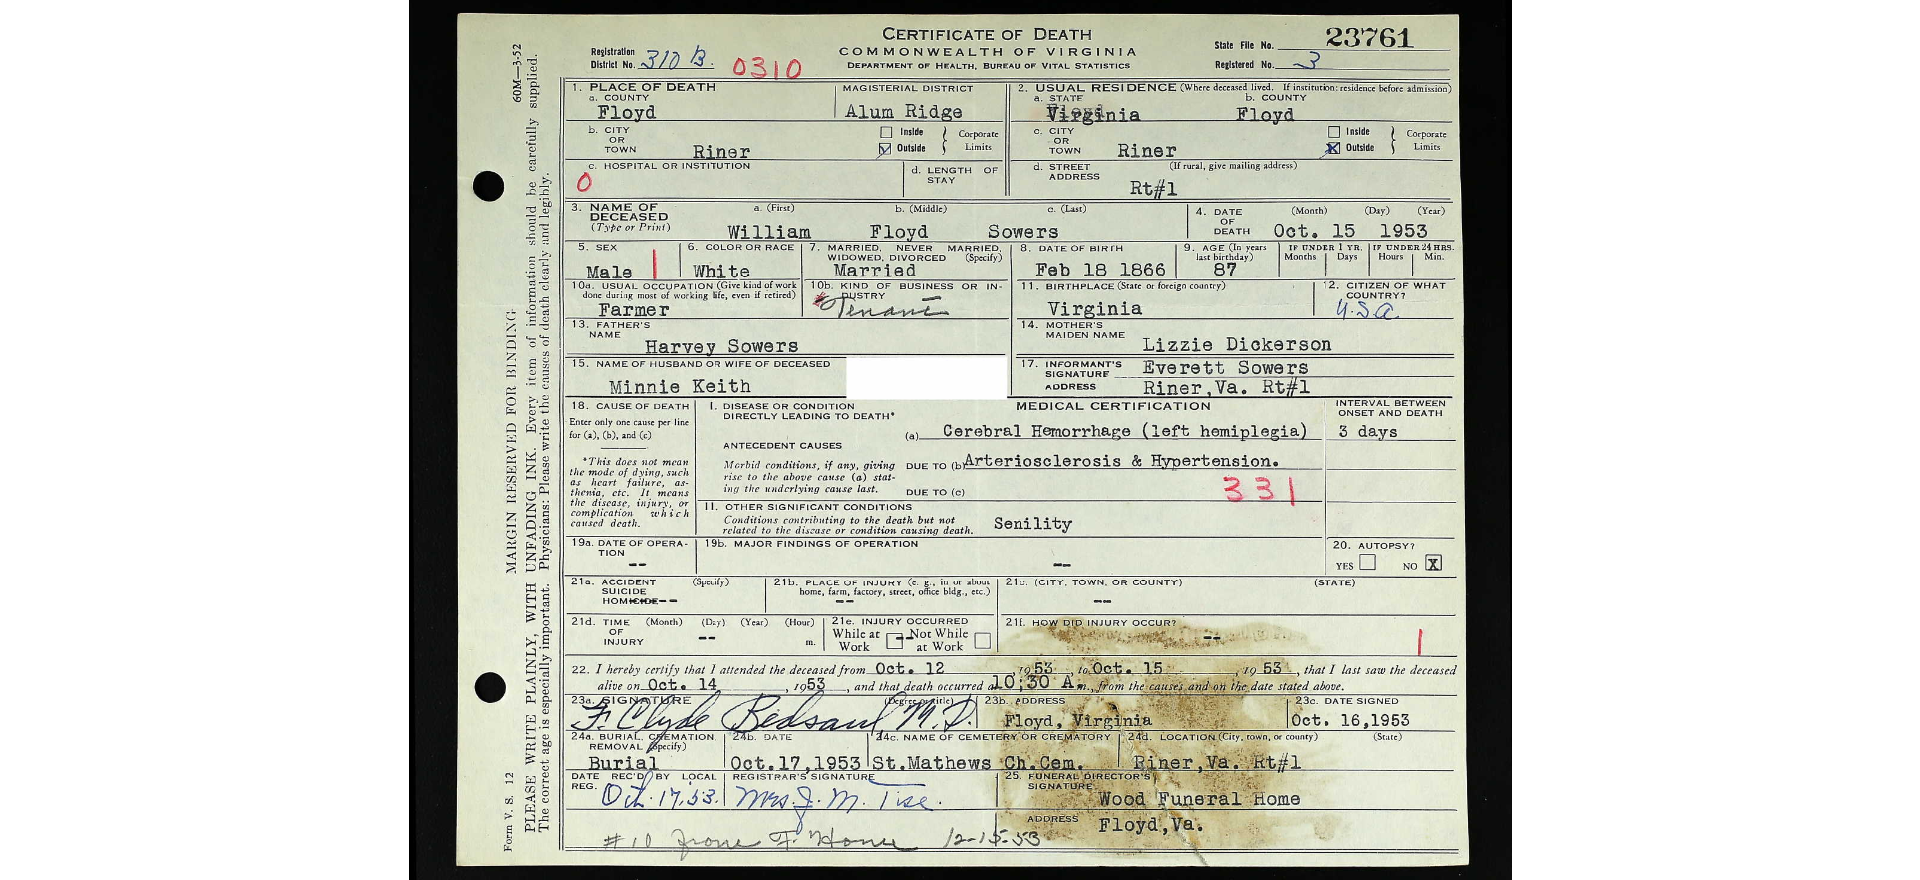 CERTIFICATE OF DEATH
COMMONWEALTH OF VIRGINIA
DEPARTMENT OF HEALTH, BUREAU OF VITAL STATISTICS
Registration District No. 310 B. 0310
State File No. 23761
Registered No. 3
60M—3-52
MARGIN RESERVED FOR BINDING
PLEASE WRITE PLAINLY, WITH UNFADING INK. Every item of information should be carefully supplied.
The correct age is especially important. Physicians: Please write the causes of death clearly and legibly.
Form V. S. 12
1. PLACE OF DEATH
a. COUNTY
Floyd
MAGISTERIAL DISTRICT
Alum Ridge
b. CITY OR TOWN Riner
Inside
Outside
Corporate Limits
c. HOSPITAL OR INSTITUTION
0
d. LENGTH OF STAY
2. USUAL RESIDENCE (Where deceased lived. If institution: residence before admission)
a. STATE
Virginia
b. COUNTY
Floyd
c. CITY OR TOWN Riner
Inside
Outside
Corporate Limits
d. STREET ADDRESS (If rural, give mailing address)
Rt#1
3. NAME OF DECEASED (Type or Print)
a. (First) b. (Middle) c. (Last)
William Floyd Sowers
4. DATE OF DEATH (Month) (Day) (Year)
Oct. 15 1953
5. SEX
Male
6. COLOR OR RACE
White
7. MARRIED, NEVER MARRIED, WIDOWED, DIVORCED (Specify)
Married
8. DATE OF BIRTH
Feb 18 1866
9. AGE (In years last birthday)
87
IF UNDER 1 YR. Months Days
IF UNDER 24 HRS. Hours Min.
10a. USUAL OCCUPATION (Give kind of work done during most of working life, even if retired)
Farmer
10b. KIND OF BUSINESS OR INDUSTRY
Tenant
11. BIRTHPLACE (State or foreign country)
Virginia
12. CITIZEN OF WHAT COUNTRY?
U.S.A.
13. FATHER'S NAME
Harvey Sowers
14. MOTHER'S MAIDEN NAME
Lizzie Dickerson
15. NAME OF HUSBAND OR WIFE OF DECEASED
Minnie Keith
17. INFORMANT'S SIGNATURE Everett Sowers
ADDRESS Riner,Va. Rt#1
18. CAUSE OF DEATH
Enter only one cause per line for (a), (b), and (c)
*This does not mean the mode of dying, such as heart failure, asthenia, etc. It means the disease, injury, or complication which caused death.
MEDICAL CERTIFICATION
INTERVAL BETWEEN ONSET AND DEATH
I. DISEASE OR CONDITION DIRECTLY LEADING TO DEATH*
(a) Cerebral Hemorrhage (left hemiplegia) 3 days
ANTECEDENT CAUSES
Morbid conditions, if any, giving rise to the above cause (a) stating the underlying cause last.
DUE TO (b) Arteriosclerosis & Hypertension.
DUE TO (c) 331
II. OTHER SIGNIFICANT CONDITIONS
Conditions contributing to the death but not related to the disease or condition causing death.
Senility
19a. DATE OF OPERATION
--
19b. MAJOR FINDINGS OF OPERATION
--
20. AUTOPSY?
YES NO X
21a. ACCIDENT SUICIDE HOMICIDE (Specify)
--
21b. PLACE OF INJURY (e. g., in or about home, farm, factory, street, office bldg., etc.)
--
21c. (CITY, TOWN, OR COUNTY) (STATE)
--
21d. TIME OF INJURY (Month) (Day) (Year) (Hour) m.
--
21e. INJURY OCCURRED
While at Work Not While at Work
21f. HOW DID INJURY OCCUR?
--
22. I hereby certify that I attended the deceased from Oct. 12, 1953, to Oct. 15, 1953, that I last saw the deceased
alive on Oct. 14, 1953, and that death occurred at 10;30 A.m., from the causes and on the date stated above.
23a. SIGNATURE (Degree or title)
F. Clyde Bedsaul, M.D.
23b. ADDRESS
Floyd, Virginia
23c. DATE SIGNED
Oct. 16,1953
24a. BURIAL, CREMATION REMOVAL (Specify)
Burial
24b. DATE
Oct.17,1953
24c. NAME OF CEMETERY OR CREMATORY
St.Mathews Ch.Cem.
24d. LOCATION (City, town, or county) (State)
Riner,Va. Rt#1
DATE REC'D BY LOCAL REG.
Oct. 17.53.
REGISTRAR'S SIGNATURE
Mrs. J. M. Tise.
25. FUNERAL DIRECTOR'S SIGNATURE
Wood Funeral Home
ADDRESS Floyd,Va.
#10 from F. Home 12-15-53